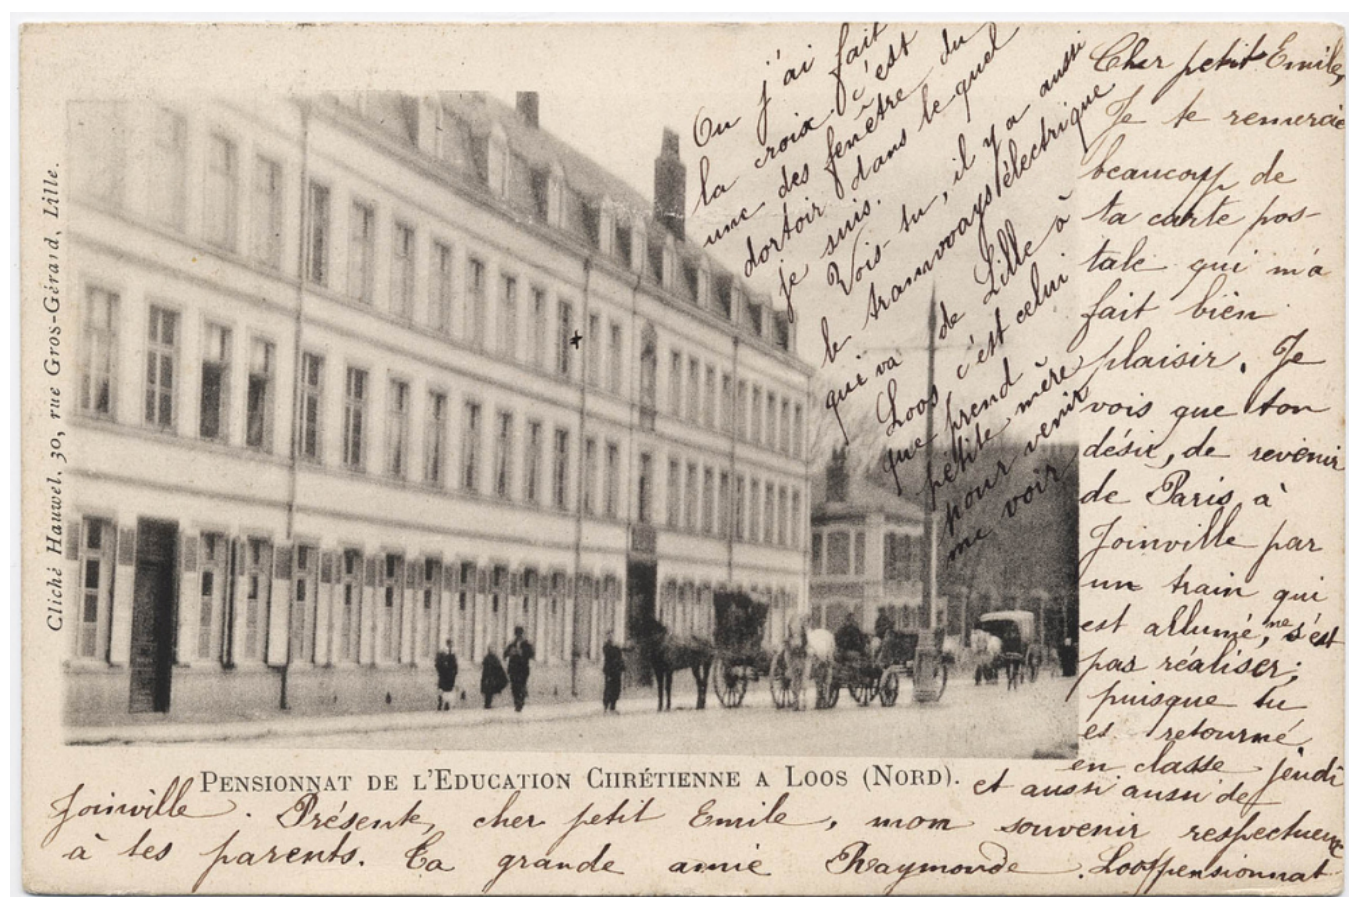 Cliché Hauwel, 30, rue Gros-Gérard, Lille.
Ou j'ai fait
la croix c'est
une des fenêtre du
dortoir dans le quel
je suis.
Vois-tu, il y a aussi
le tramways électrique
qui va de Lille à
Loos c'est celui
que prend
petite mère
pour venir
me voir
Cher petit Emile,
Je te remercie
beaucoup de
ta carte pos-
tale qui m'a
fait bien
plaisir. Je
vois que ton
désir, de revenir
de Paris à
Joinville par
un train qui
est allumé, ne s'est
pas réaliser;
puisque tu
es retourné
en classe jeudi
et aussi de
PENSIONNAT DE L'EDUCATION CHRÉTIENNE A LOOS (NORD).
Joinville. Présente, cher petit Emile, mon souvenir respectueux
à tes parents. Ta grande amie Raymonde. Loos pensionnat